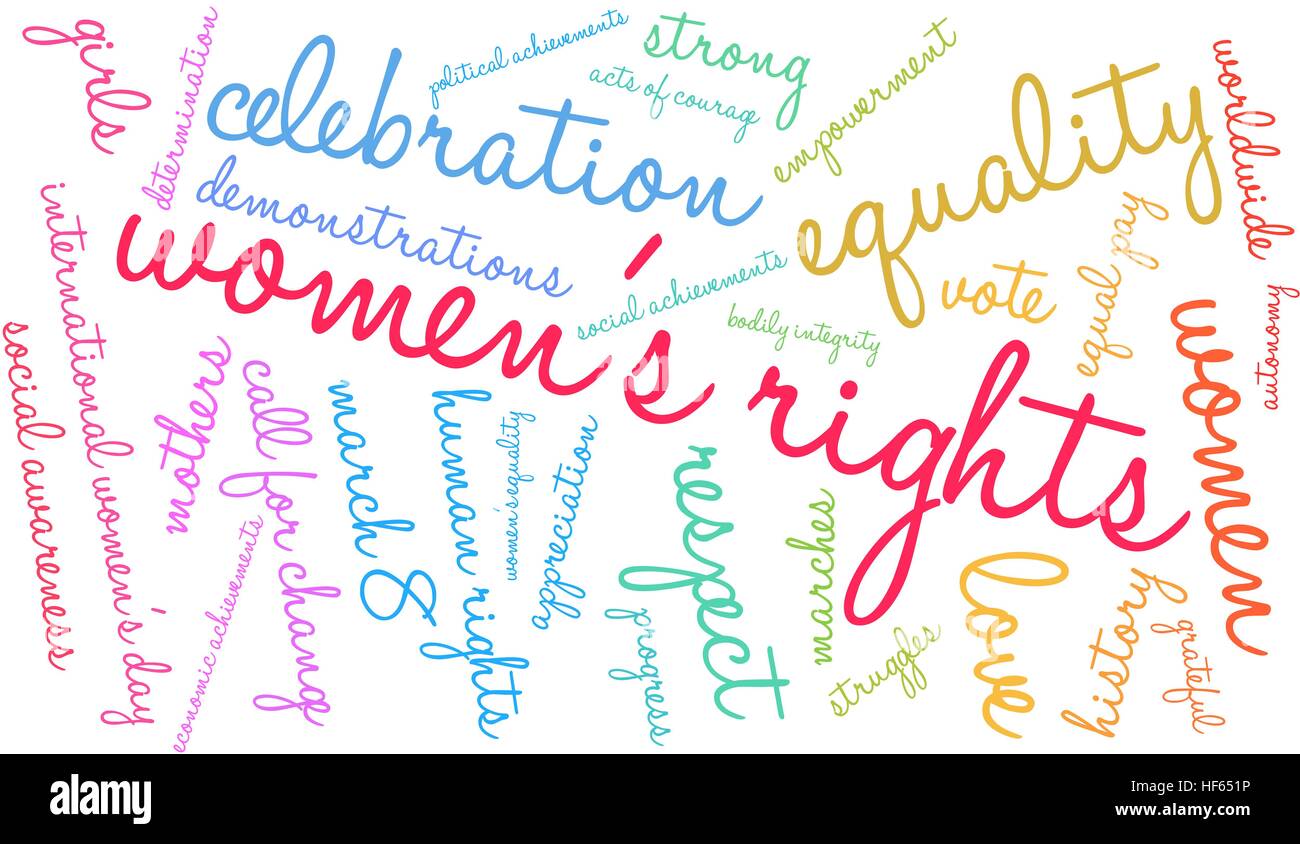 girls
determination
celebration
political achievements
strong
acts of courage
empowerment
equality
worldwide
demonstrations
women's rights
social achievements
bodily integrity
vote
equal pay
autonomy
women
international women's day
social awareness
mothers
call for change
economic achievements
march 8
human rights
women's equality
appreciation
respect
progress
marches
struggles
love
history
grateful
a alamy stock photo
HF651P
www.alamy.com